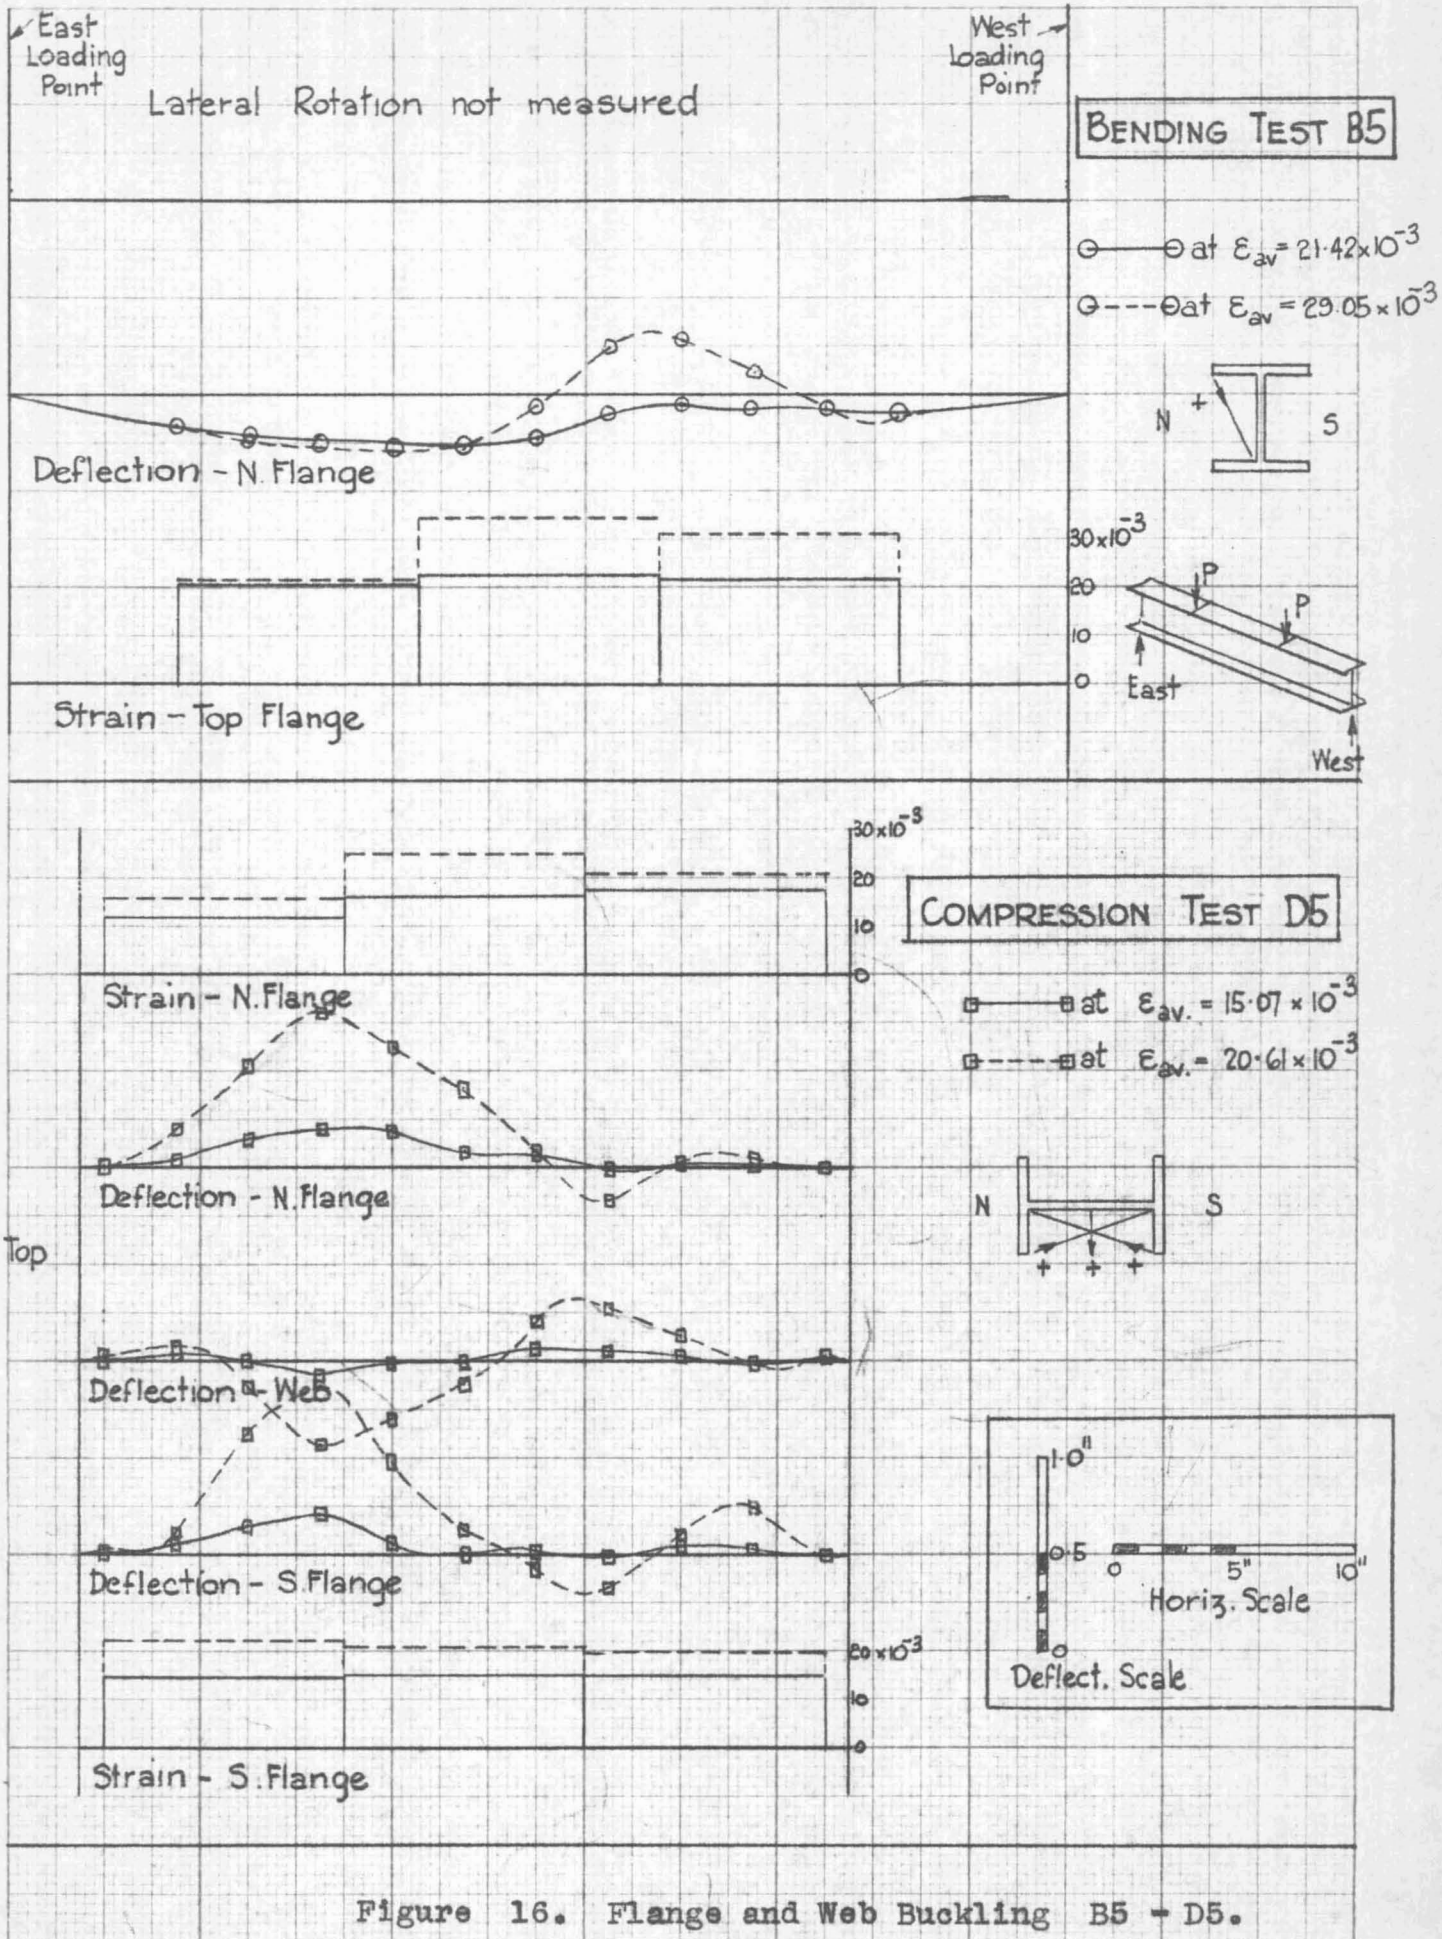 East
Loading
Point
West
Loading
Point
Lateral Rotation not measured
BENDING TEST B5
at εav = 21·42×10⁻³
at εav = 29·05×10⁻³
N + S
Deflection - N. Flange
30×10⁻³
20
10
0
P
P
East
West
Strain - Top Flange
30×10⁻³
20
10
0
COMPRESSION TEST D5
Strain - N. Flange
at εav. = 15·07 × 10⁻³
at εav. = 20·61 × 10⁻³
Deflection - N. Flange
N S
+ + +
Top
Deflection - Web
1·0"
0·5
0
0 5" 10"
Horiz. Scale
Deflect. Scale
Deflection - S. Flange
20×10⁻³
10
0
Strain - S. Flange
Figure 16. Flange and Web Buckling B5 - D5.